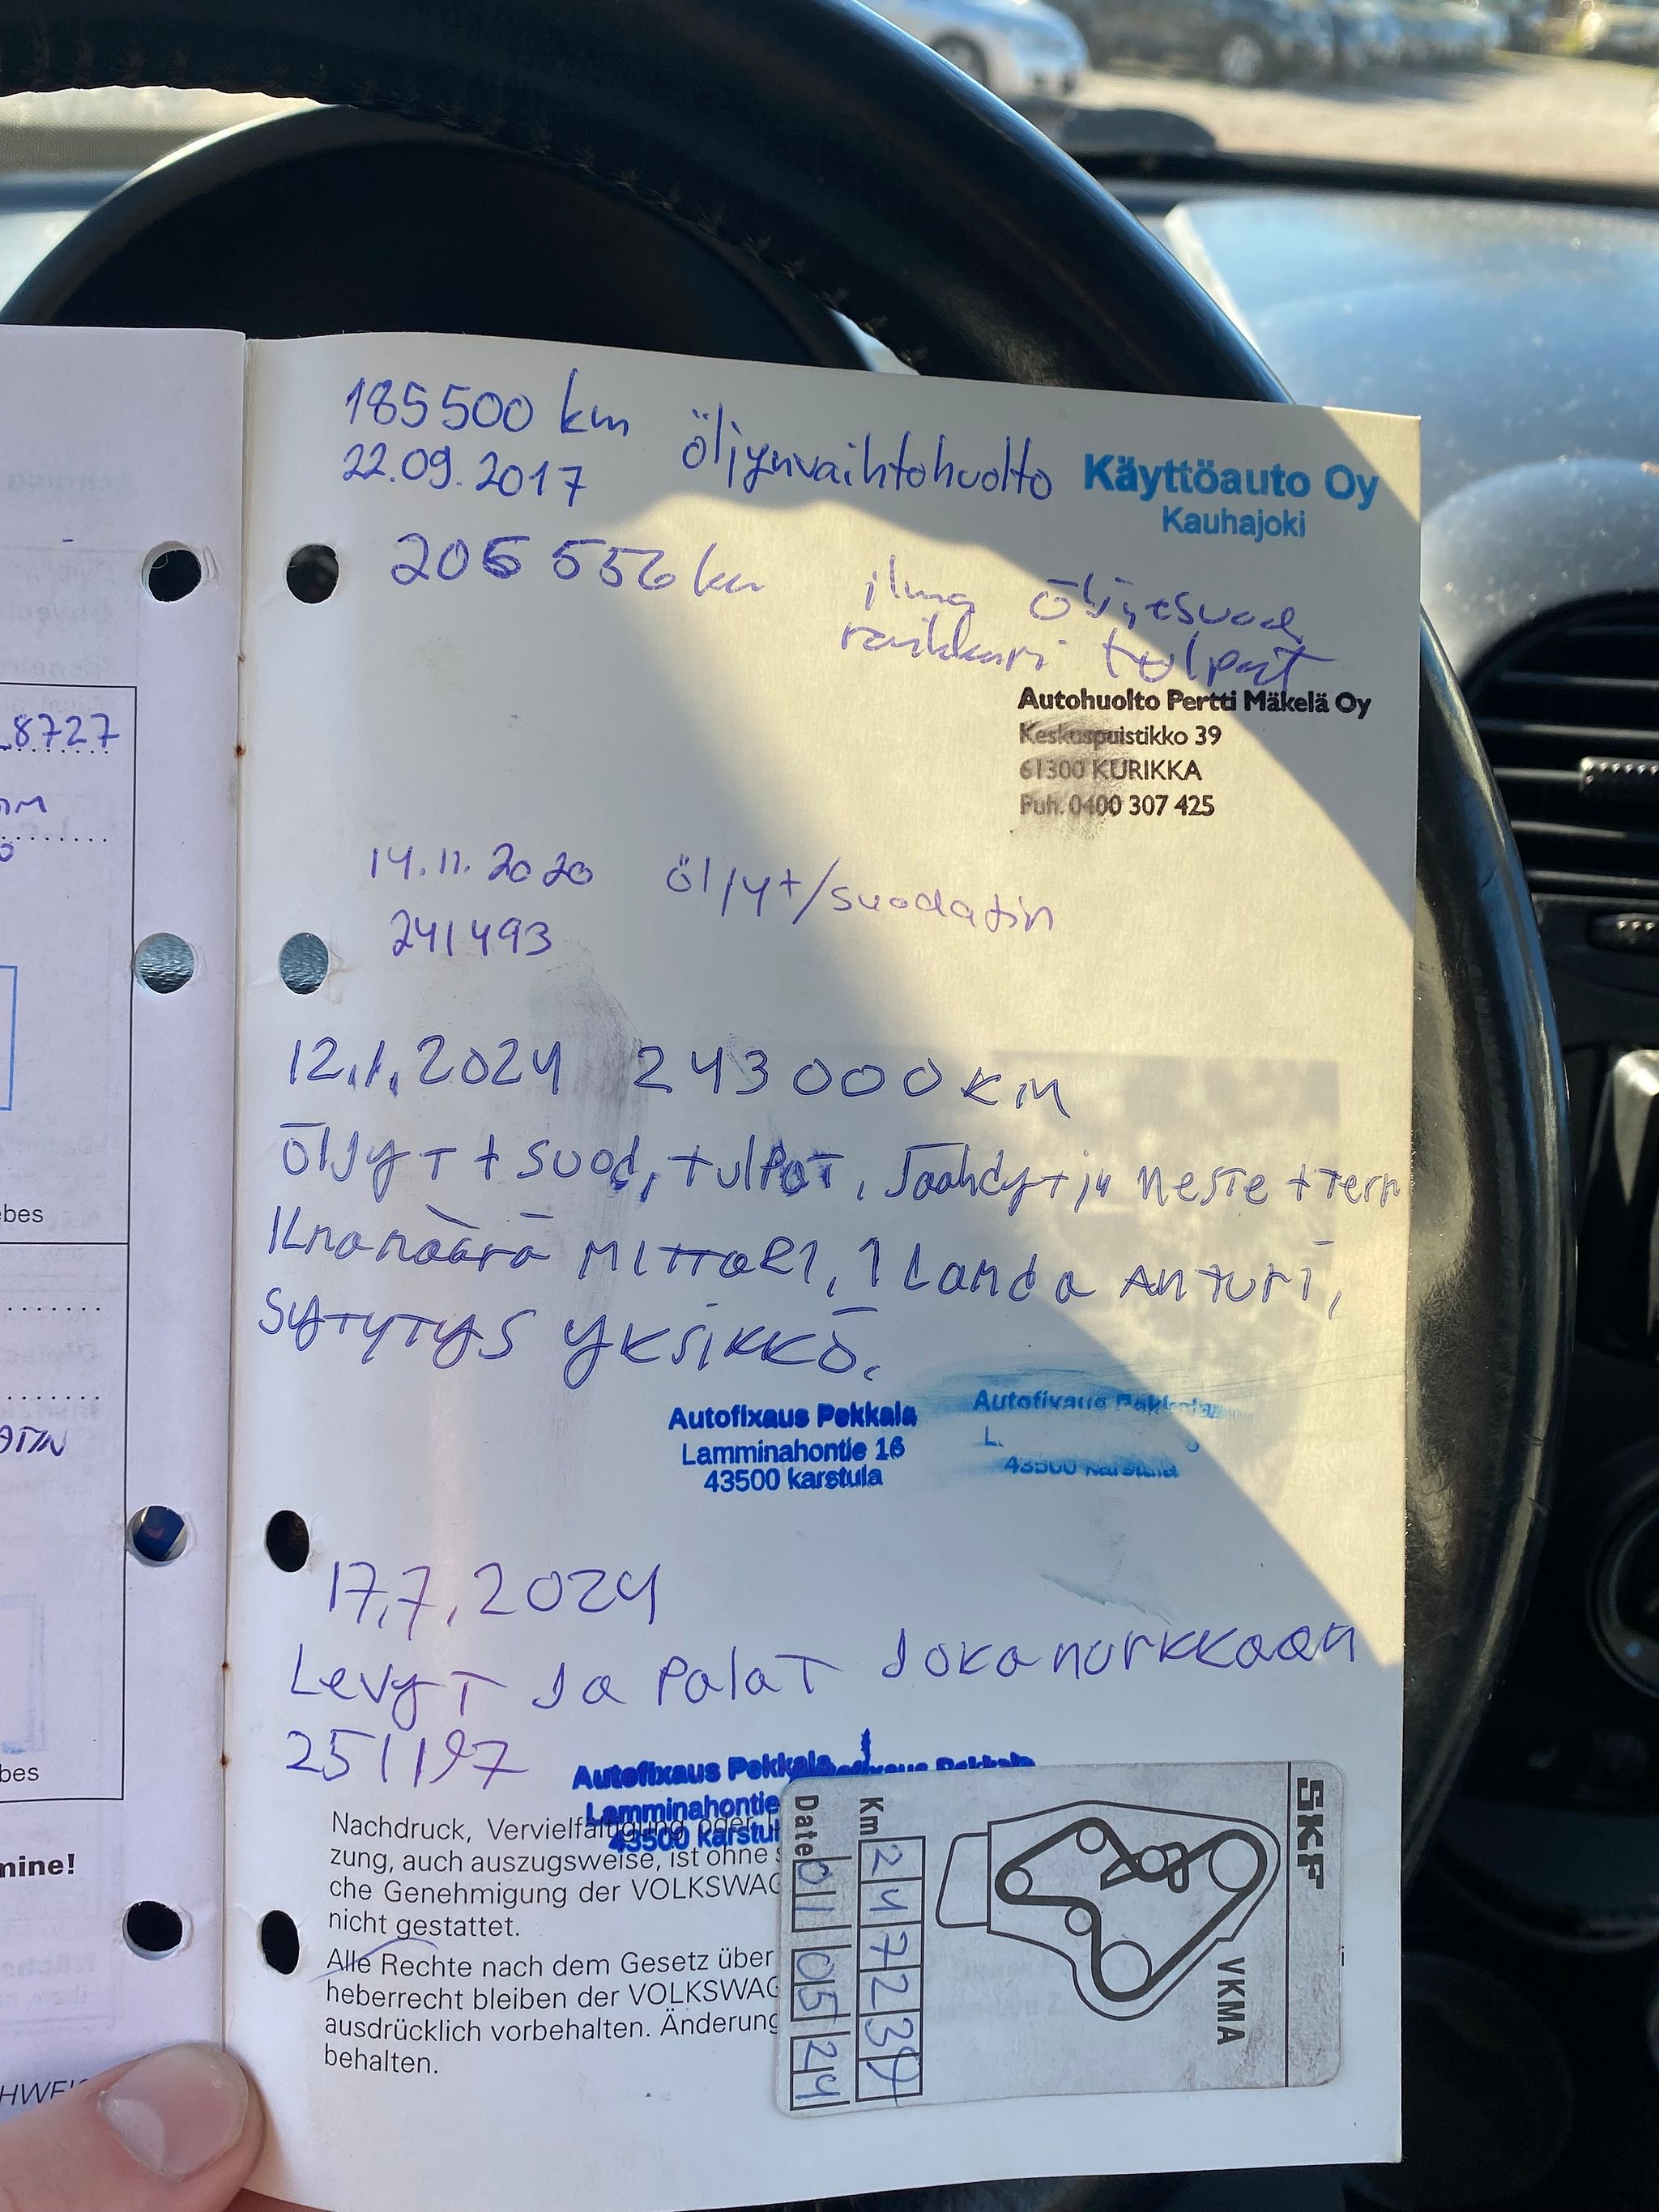 8727
ebes
bes
mine!
185500 km
22.09.2017
öljynvaihtohuolto
Käyttöauto Oy
Kauhajoki
206 556 km
ilma öljytsuod
raikkari tulpat
Autohuolto Pertti Mäkelä Oy
Keskuspuistikko 39
61300 KURIKKA
Puh. 0400 307 425
14.11.2020 öljyt/suodatin
241493
12.1.2024 243000 KM
öljyT + suod, tulpat, Jäähdytin neste + Term
Ilmamäärä Mittari, 1 Lamda Anturi,
Sytytys yksikkö.
Autofixaus Pekkala
Lamminahontie 16
43500 karstula
Autofixaus Pekkala
43500 karstula
17.7.2024
LevyT Ja PalaT Jokanurkkaan
251197
Autofixaus Pekkala
Lamminahontie
43500 karstul
Nachdruck, Vervielfältigung oder
zung, auch auszugsweise, ist ohne
che Genehmigung der VOLKSWAG
nicht gestattet.
Alle Rechte nach dem Gesetz über
heberrecht bleiben der VOLKSWAG
ausdrücklich vorbehalten. Änderung
behalten.
SKF
VKMA
Km 247234
Date 01 05 24